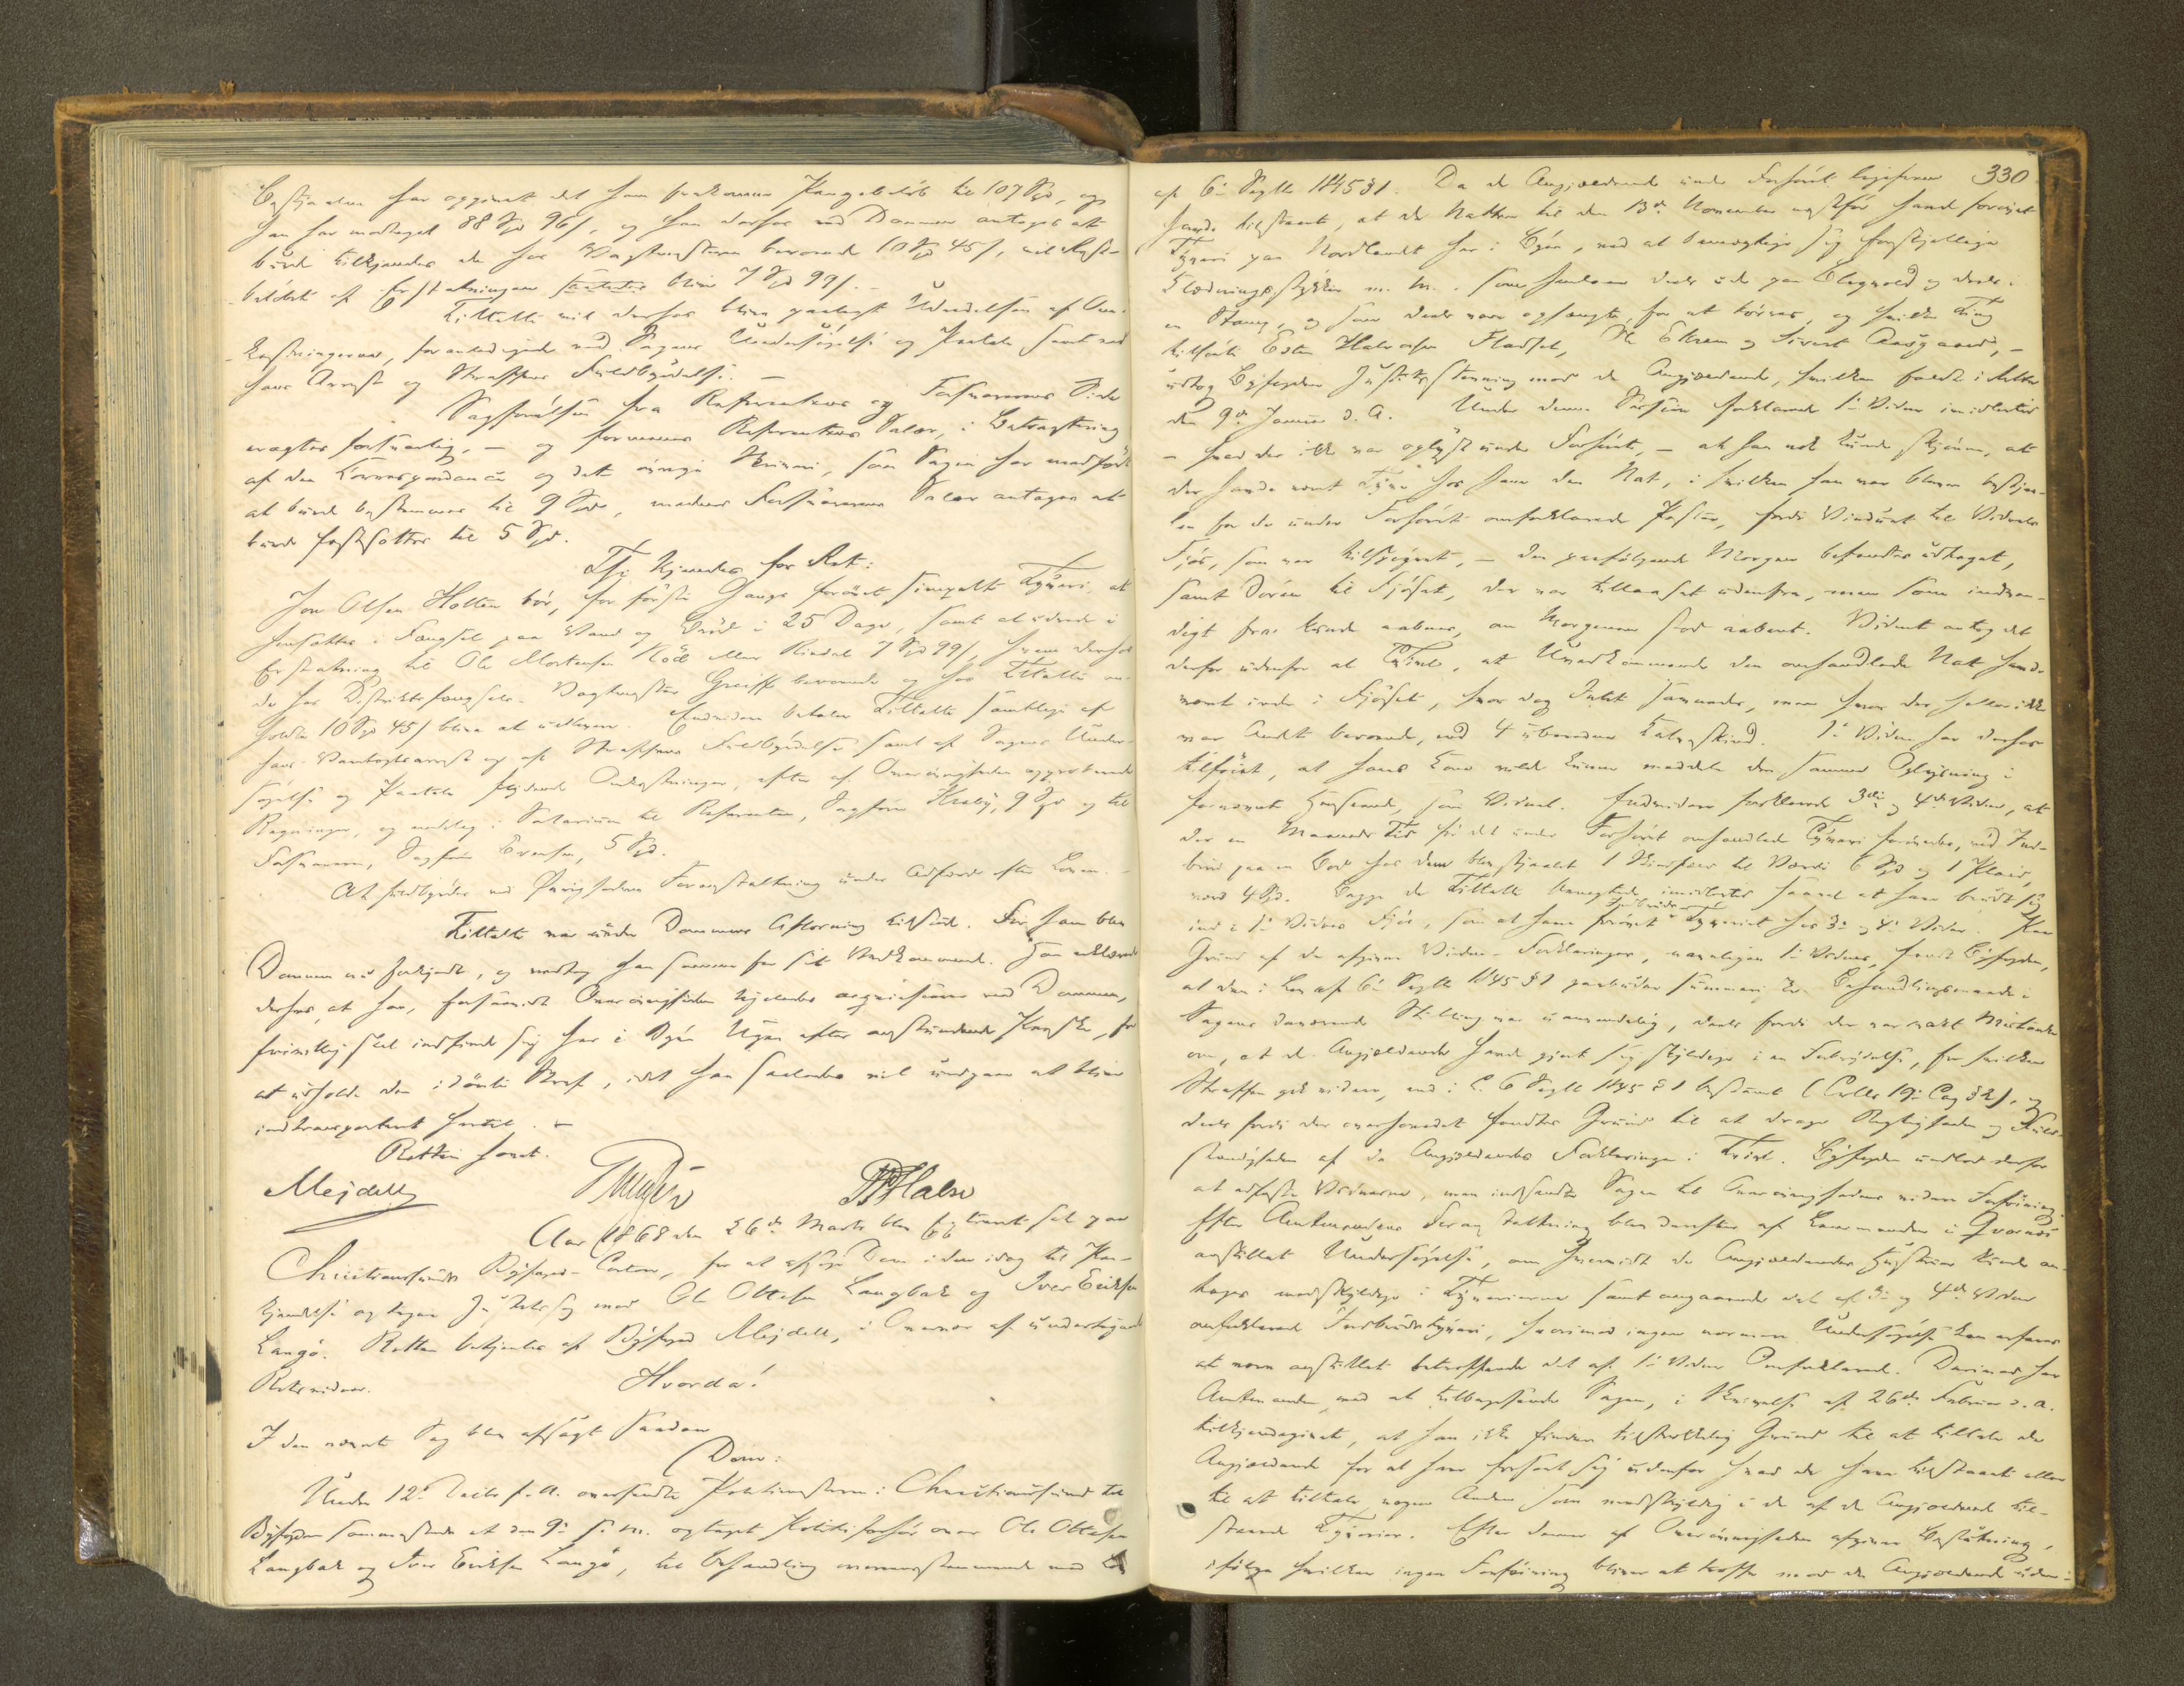 Bestjaalne har opgivet det ham frakomne Pengebeløb til 107 Spd, og
han har modtaget 88 Spd 96 s, og han derfor ved Dommen antages at
burde tilkjendes de hos Vagtmesteren beroende 10 Spd 45 s, vil Rest-
beløbet af Erstatningen blive 7 Spd 99 s. –
Tiltalte vil derhos blive paalagt Udredelsen af Om-
kostningerne, foranledigede ved Sagens Undersøgelse og Paatale samt ved
hans Arrest og Straffens Fuldbyrdelse. –
Sagførelsen fra Referentens og Forsvarerens Side
agtes forsvarlig, – og formenes Referentens Salær, i Betragtning
af den Correspondance og det øvrige Skriveri, som Sagen har medført
at burde bestemmes til 9 Spd, medens Forsvarerens Salær antages at
burde fastsættes til 5 Spd.
Thi kjendes for Ret:
Jon Olsen Holten bør, for første Gang forøvet simpelt Tyveri, at
hensættes i Fængsel paa Vand og Brød i 25 Dage, samt at udrede i
Erstatning til Ole Mortensen 7 Spd 99 s, hvem derhos
de hos Distriktsfængslets Vagtmester Greiff beroende og hos Tiltalte an-
holdte 10 Spd 45 s blive at udlevere. Endvidere betaler Tiltalte samtlige af
hans Varetægtsarrest og af Straffens Fuldbyrdelse samt af Sagens Under-
søgelse og Paatale flydende Omkostninger, efter af Overøvrigheden approberede
Regninger, og indbefattet Salarium til Referenten, Sagfører Krabÿ, 9 Spd og til
Forsvareren, Sagfører Brensen, 5 Spd.
At fuldbyrdes ved Øvrighedens Foranstaltning under Adfærd efter Loven. –
Tiltalte var under Dommens Afhørning tilstede. For ham blev
Dommen nu forkyndt, og modtog han samme for sit Vedkommende. Han erklærede
derhos, at han, forsaavidt Overøvrigheden ligeledes acqviescerer ved Dommen,
frivilligt skal indfinde sig her i Byen Ugen efter anstundende Paaske, for
at udholde den idømte Straf, idet han saaledes vil undgaa at blive
indtransporteret hertil. –
Retten hævet.
Mejdell
PHalse
Aar 1868 den 26de Marts blev Extraret sat paa
Christiansunds Byfoged-Contor, for at afsige Dom i den idag til Paa-
kjendelse optagne Justitssag mod Ole Ottesen Langbak og Iver Eriksen
Langø. Retten betjentes af Byfoged Mejdell, i Overvær af undertegnede
Retsvidner.
Hvorda!
I den nævnte Sag blev afsagt saadan
Dom:
Under 12te Decbr f. A. oversendte Politimesteren i Christiansund til
Byfogden sammesteds et den 9de s. M. optaget Politiforhør over Ole Ottesen
Langbak og Iver Eriksen Langø, til Behandling overensstemmende med Lov
330
af 6te Septbr 1845 § 1. Da de Angjældende under Forhøret ligesom
havde tilstaaet, at de Natten til den 13de November næstfør havde forøvet
Tyveri paa Nordlandet her i Byen, ved at bemægtige sig forskjellige
Klædningsstykker m. m. som henlaae deels ude paa Blegvold og deels i
en Stamp, og som deels vare ophængte, for at tørres, og hvilke Ting
tilhørte Esten Halvorsen Fladset, N. Ekrem og Sivert Aasgaard, –
udtog Byfogden Justitsstevning mod de Angjældende, hvilken faldt i Rette
den 9de Januar d. A. Under denne Session forklarede 1ste Vidne imidlertid
– hvad der ikke var oplyst under Forhøret, – at han nok kunde skjønne, at
der havde været Tyve hos ham den Nat, i hvilken han var bleven bestjaa-
len for de under Forhøret omforklarede Poster, fordi Vinduet til Vidnets
Fjøs, som var tilspigret, – den paafølgende Morgen befandtes udtaget,
samt Døren til Fjøset, der var tillaaset udenfra, men som indven-
digt fra kunde aabnes, om Morgenen stod aabent. Vidnet antog det
derfor udenfor al Tvivl, at Uvedkommende den omhandlede Nat havde
været inde i Fjøset, hvor dog Intet savnedes, men hvor der heller ikke
var Andet beroende, end 4 uberedne Kalveskind. 1ste Vidne har derhos
tilføiet, at hans Kone vilde kunne meddele den samme Oplysning i
fornævnte Henseende, som Vidnet. Endvidere forklarede 3die og 4de Vidne, at
der en Maaneds Tid før det under Forhøret omhandlede Tyveri forøvedes, ved Ind-
brud paa en Bod hos dem blev stjaalet 1 Skindfæld til Værdi 6 Spd og 1 Plaid,
værd 4 Spd. Begge de Tiltalte benegtede imidlertid saavel at have brudt sig
ind i 1ste Vidnes Fjøs, som at have forøvet Indbruds Tyveriet hos 3die og 4de Vidne. Paa
Grund af de afgivne Vidne-Forklaringer, navnligen 1ste Vidnes, fandt Byfogden,
at den i Lov af 6te Septbr 1845 § 1 paabudne summariske Behandlingsmaade i
Sagens daværende Stilling var uanvendelig, deels fordi der var vakt Mistanke
om, at de Angjældende havde gjort sig skyldige i en Forbrydelse, for hvilken
Straffen gik videre, end i L. 6 Septbr 1845 § 1 bestemt (Crlls 19de Cap § 2), og
deels fordi der overhovedet fandtes Grund til at drage Rigtigheden og Fuld-
stændigheden af de Angjældendes Forklaringer i Tvivl. Byfogden undlod derfor
at edfæste Vidnerne, men indsendte Sagen til Overøvrighedens videre Forføining.
Efter Amtmandens Foranstaltning blev derefter af Lensmanden i Qvernæs
anstillet Undersøgelse, om hvorvidt de Angjældendes Hustruer kunde an-
tages medskyldige i Tyverierne samt angaaende det af 3die og 4de Vidne
omforklarede Indbrudstyveri, hvorimod ingen nærmere Undersøgelse kan erfares
at være anstillet betræffende det af 1ste Vidne Omforklarede. Derimod har
Amtmanden, ved at tilbagesende Sagen, i Skrivelse af 26de Februar d. A.
tilkjendegivet, at han ikke finder tilstrækkelig Grund til at tiltale de
Angjældende for at have forseet sig udenfor hvad de have tilstaaet eller
til at tiltale nogen Anden som medskyldig i de af de Angjældende til-
staaede Tyverier. Efter denne af Overøvrigheden afgivne Beslutning,
ifølge hvilken ingen Forføining bliver at træffe mod de Angjældende uden-